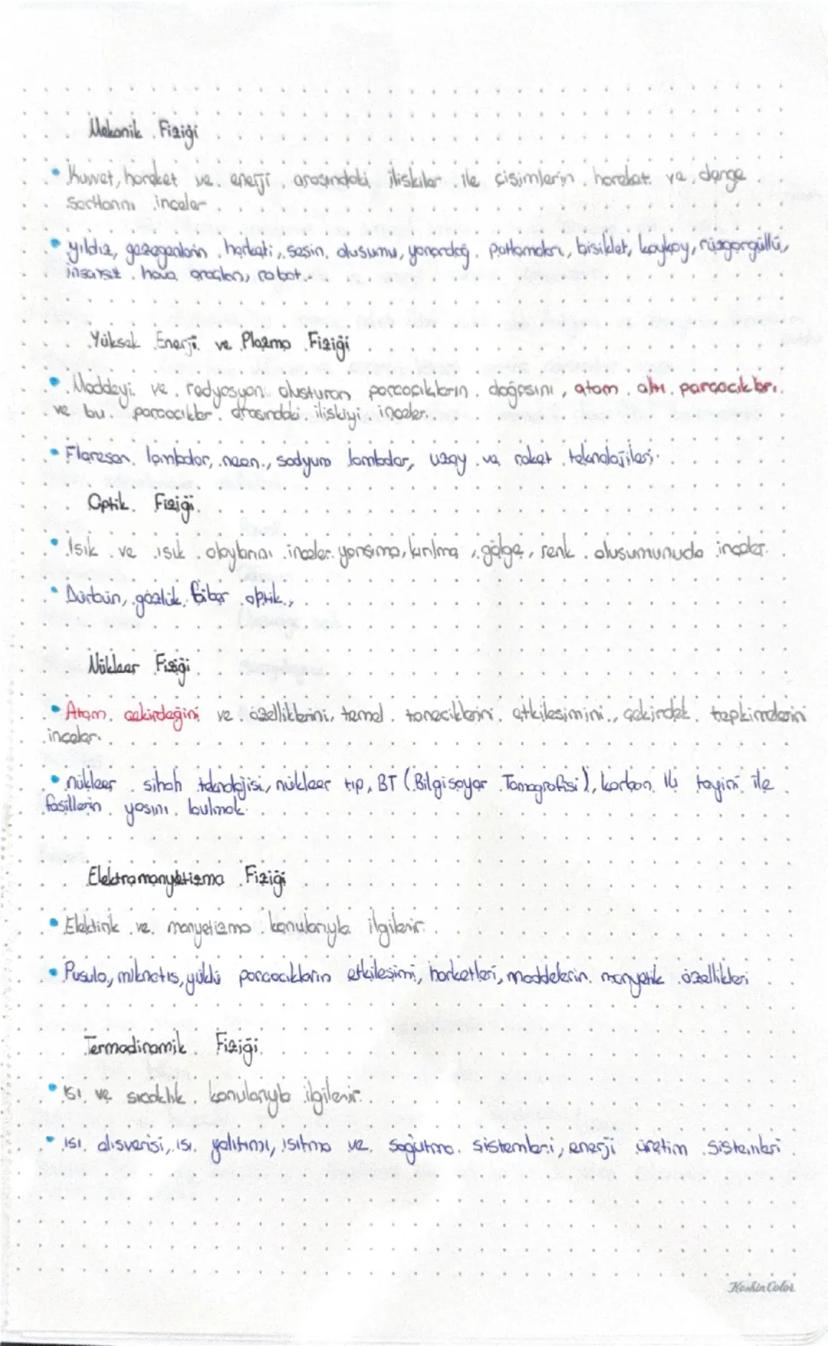 Mekanik Fiziği
• Kuvvet, hareket ve enerji arasındaki ilişkiler ile cisimlerin hareket ve denge
şartlarını inceler
• yıldız, gezegenlerin harketi, sesin oluşumu, yanardağ patlamaları, bisiklet, kaykay, rüzgargüllü,
insansız hava araçları, robot.
Yüksek Enerji ve Plazma Fiziği
• Maddeyi ve radyosyon oluşturan parçacıkların doğasını, atom altı parçacıkları
ve bu parçacıklar arasındaki ilişkiyi inceler.
• Floresan lambalar, neon, sodyum lambalar, uzay ve roket teknolojilesi.
Optik Fiziği
• Işık ve ışık olaylarını inceler yansıma, kırılma, gölge, renk oluşumunuda inceler.
• Dürbün, gözlük, fiber optik,
Nükleer Fiziği
• Atom çekirdeğini ve özelliklerini, temel taneciklerini etkileşimini, çekirdek tepkimelerini
inceler.
• nükleer silhah teknolojisi, nükleer tıp, BT (Bilgisayar Tomografisi), karbon 14 tayini ile
fosillerin yaşını bulmak.
Elektromanyetizma Fiziği
• Elektirik ve manyetizma konularıyla ilgilenir.
• Pusula, mıknatıs, yüklü parçacıkların etkileşimi, harketleri, maddelerin manyetik özellikleri
Termodinamik Fiziği
• ısı ve sıcaklık konularıyla ilgilenir.
• ısı alışverişi, ısı yalıtımı, ısıtma ve soğutma sistemleri, enerji üretim sistemleri
KeskinColor